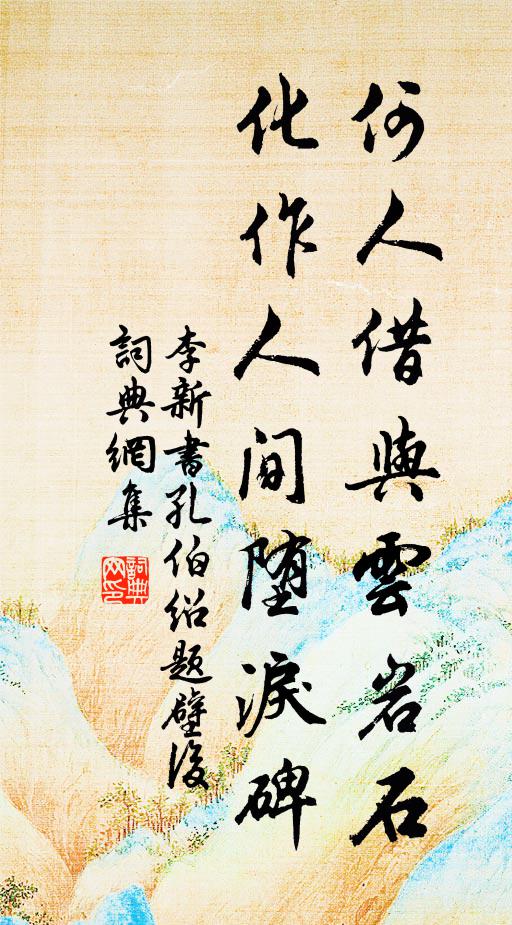 何人借與雲岩石
化作人间堕淚碑
李新書孔伯紹題壁後
詞典網集
詞典
网印